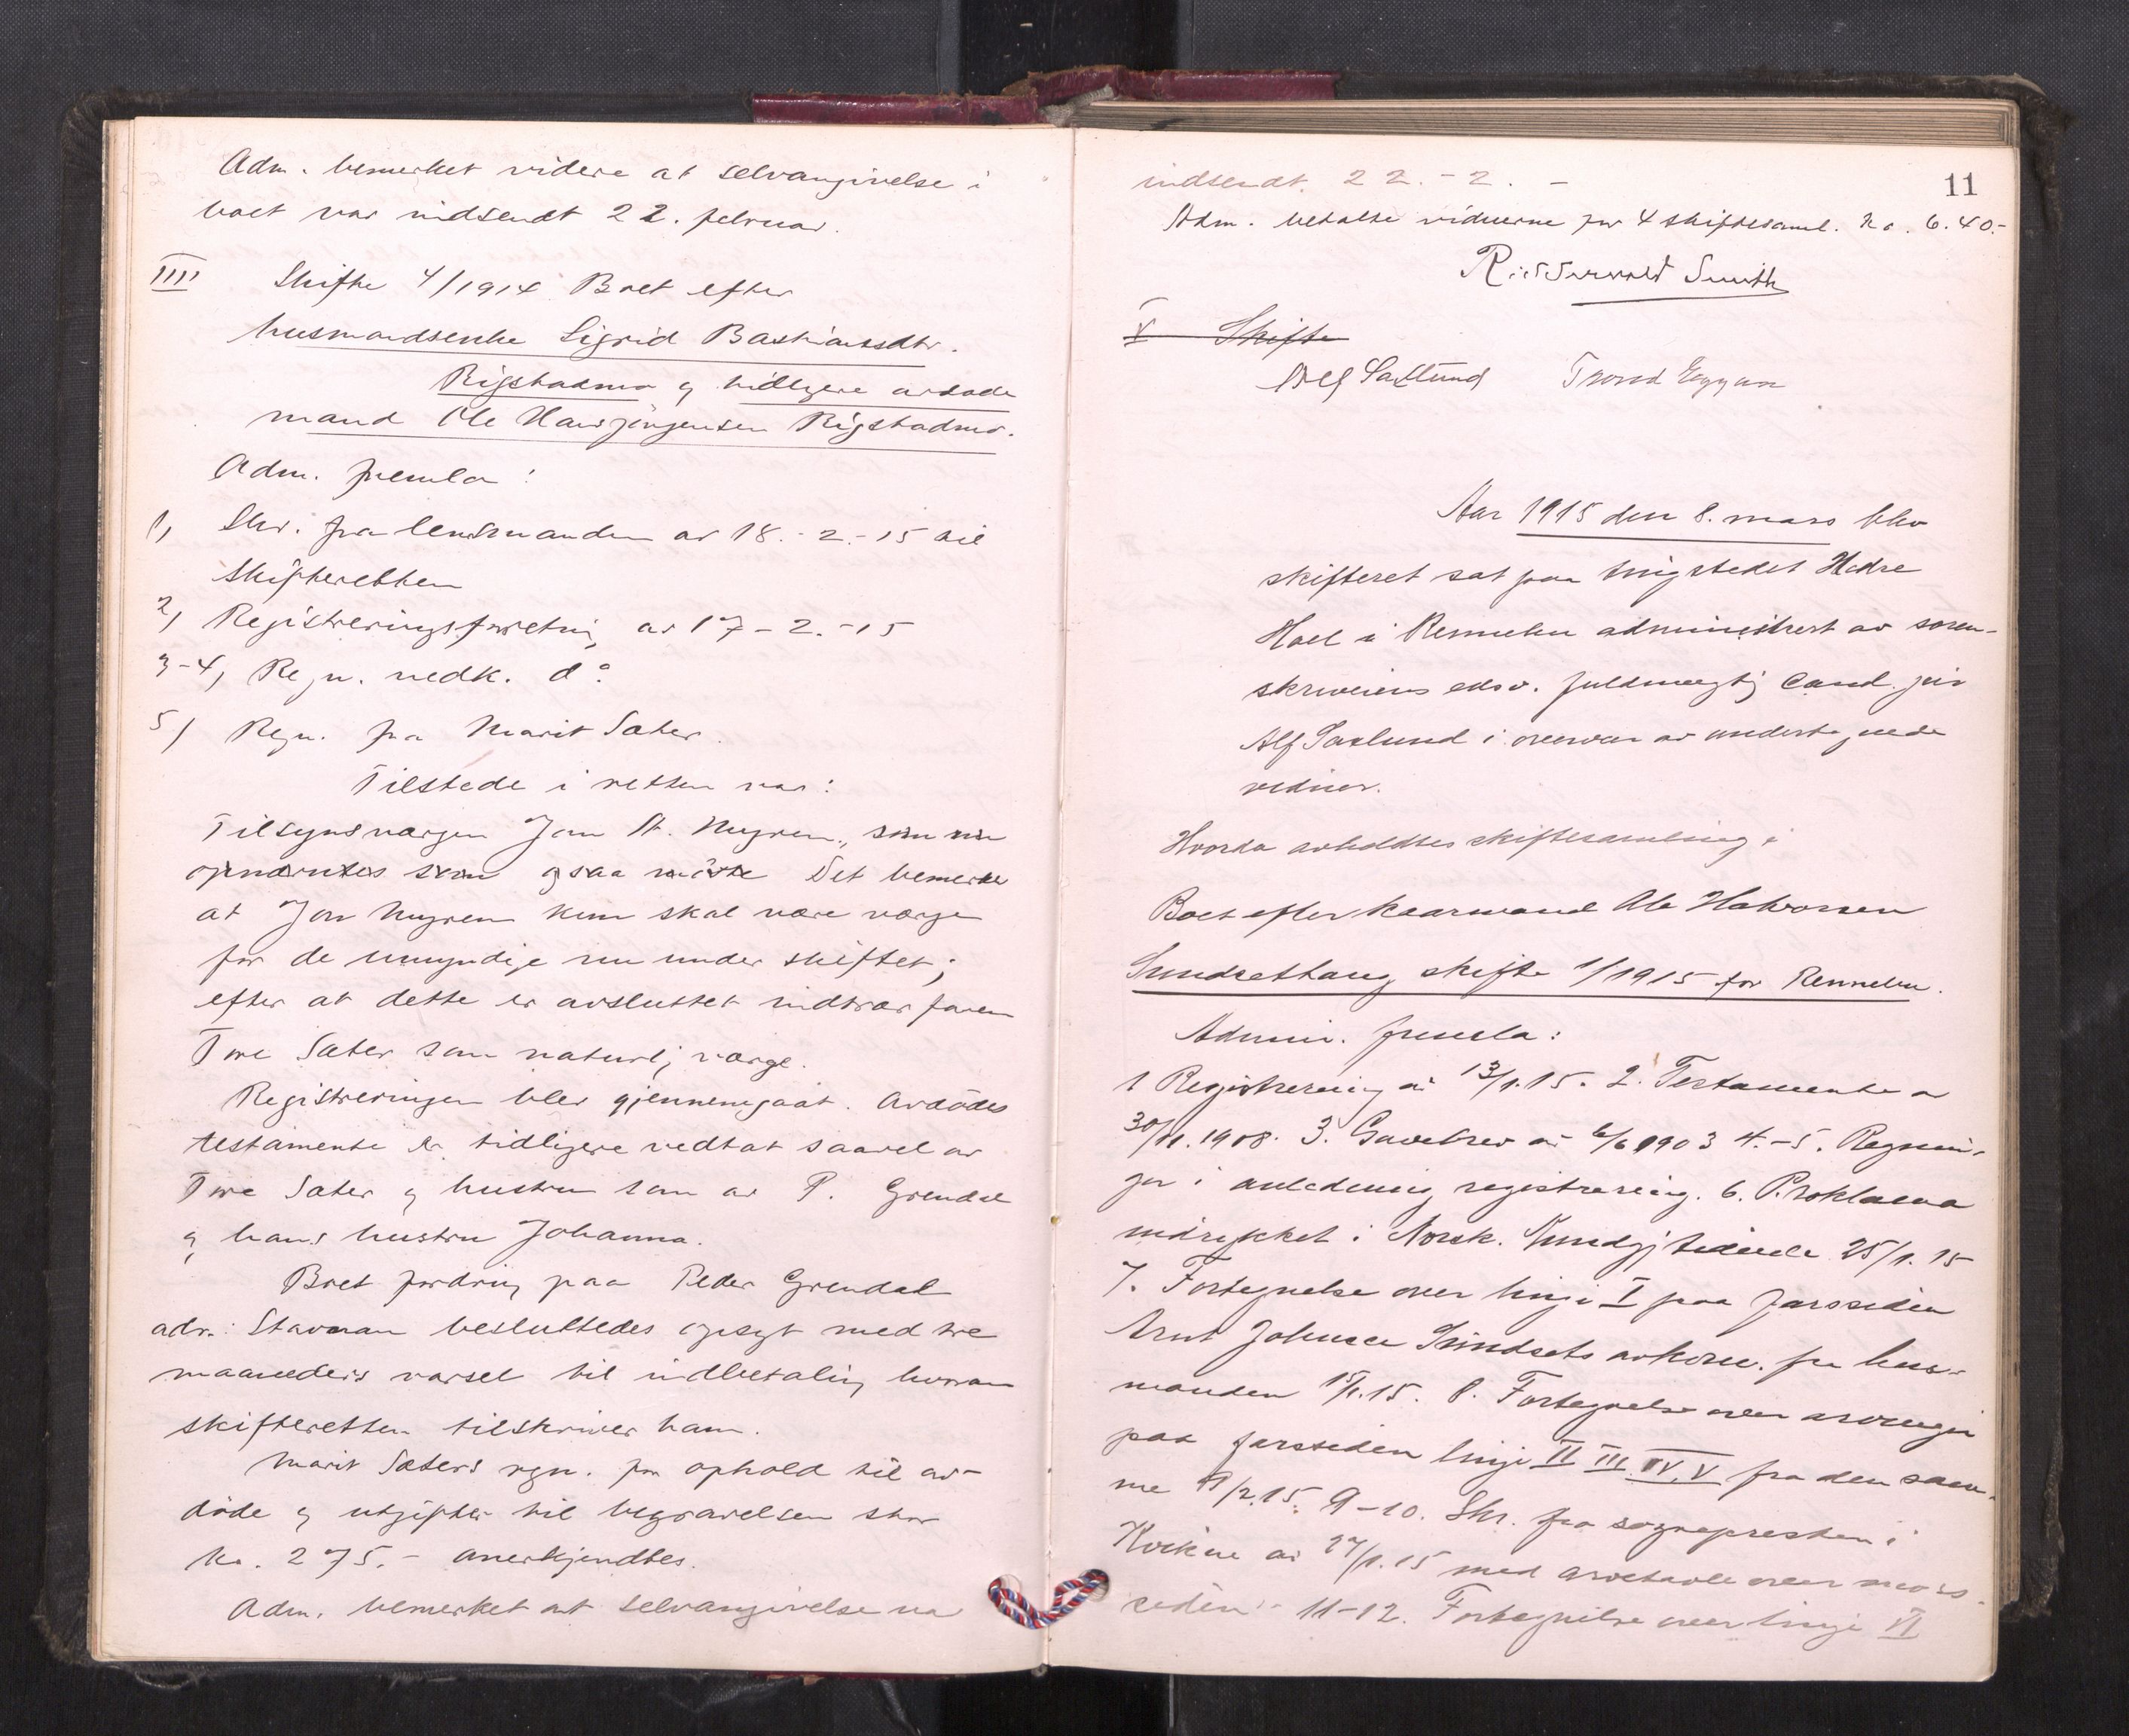 Adm. bemerket videre at selvangivelse i
boet var indsendt 22. februar.
IIII Skifte 4/1914 Boet efter
husmandsenke Sigrid Bastiansdtr.
Rigstadmo og tidligere avdøde
mand Ole Hansjörgensen Rigstadmo.
Adm. fremla:
1, Skr. fra lensmanden av 18.-2.-15 til
skifteretten
2, Registreringsforretning av 17-2.-15
3-4, Regn. vedk. do.
5) Regn. fra Marit Sæter.
Tilstede i retten var:
Tilsynsvergen Jon St. Nygren, som nu
opnævntes som ogsaa møtte Det bemerkes
at Jon Nygren kun skal være verge
for de umyndige nu under skiftet;
efter at dette er avsluttet indtrær faren
Tore Sæter som naturlig verge.
Registreringen blev gjennemgaat. Avdødes
testamente er tidligere vedtat saavel av
Tore Sæter og hustru som av P. Grendal
og hans hustru Johanna.
Boet fordring paa Peder Grendal
adr.: Stavnan besluttedes opsagt med tre
maaneders varsel til indbetaling hvorom
skifteretten tilskriver ham.
Marit Sæters regn. for ophold til av-
döde og utgifter til begravelsen stor
kr. 275.- anerkjendtes.
Adm. bemerket at selvangivelse va
11
indsendt 22.-2.-
Adm. betalte vidnerne for 4 skiftesaml. Kr. 6.40.-
Smith
V Skifte
Alf Saxlund Trond Eggan
Aar 1915 den 8. mars blev
skifteret sat paa tingstedet Nedre
Hoel i Rennebu administrert av soren-
skriverens edsv. fuldmægtig Cand. jur
Alf Saxlund i overvær av undertegnede
vidner.
Hvorda avholdtes skiftesamling i
Boet efter kaarmand Ole Halvorsen
Sundsethaug skifte 1/1915 for Rennebu.
Admin. fremla:
1 Registrering av 13/1.15. 2. Testamente av
30/11.1908. 3. Gavebrev av 6/6 1903 4.-5. Regnin-
ger i anledning registrering. 6. Proklama
indrykket i Norsk. Kundgj tidende 25/1.15
7. Fortegnelse over linje I paa farssiden
Arnt Johnsen Sundsets avkom. fra lens-
manden 15/1.15. 8. Fortegnelse over arvinger
paa farssiden linje II III IV, V fra den sam-
me 9/2.15. 9-10. Skr. fra sognepresten i
Kvikne av 27/1.15 med arvetavle over mors-
siden - 11-12. Fortegnelse over linje VI